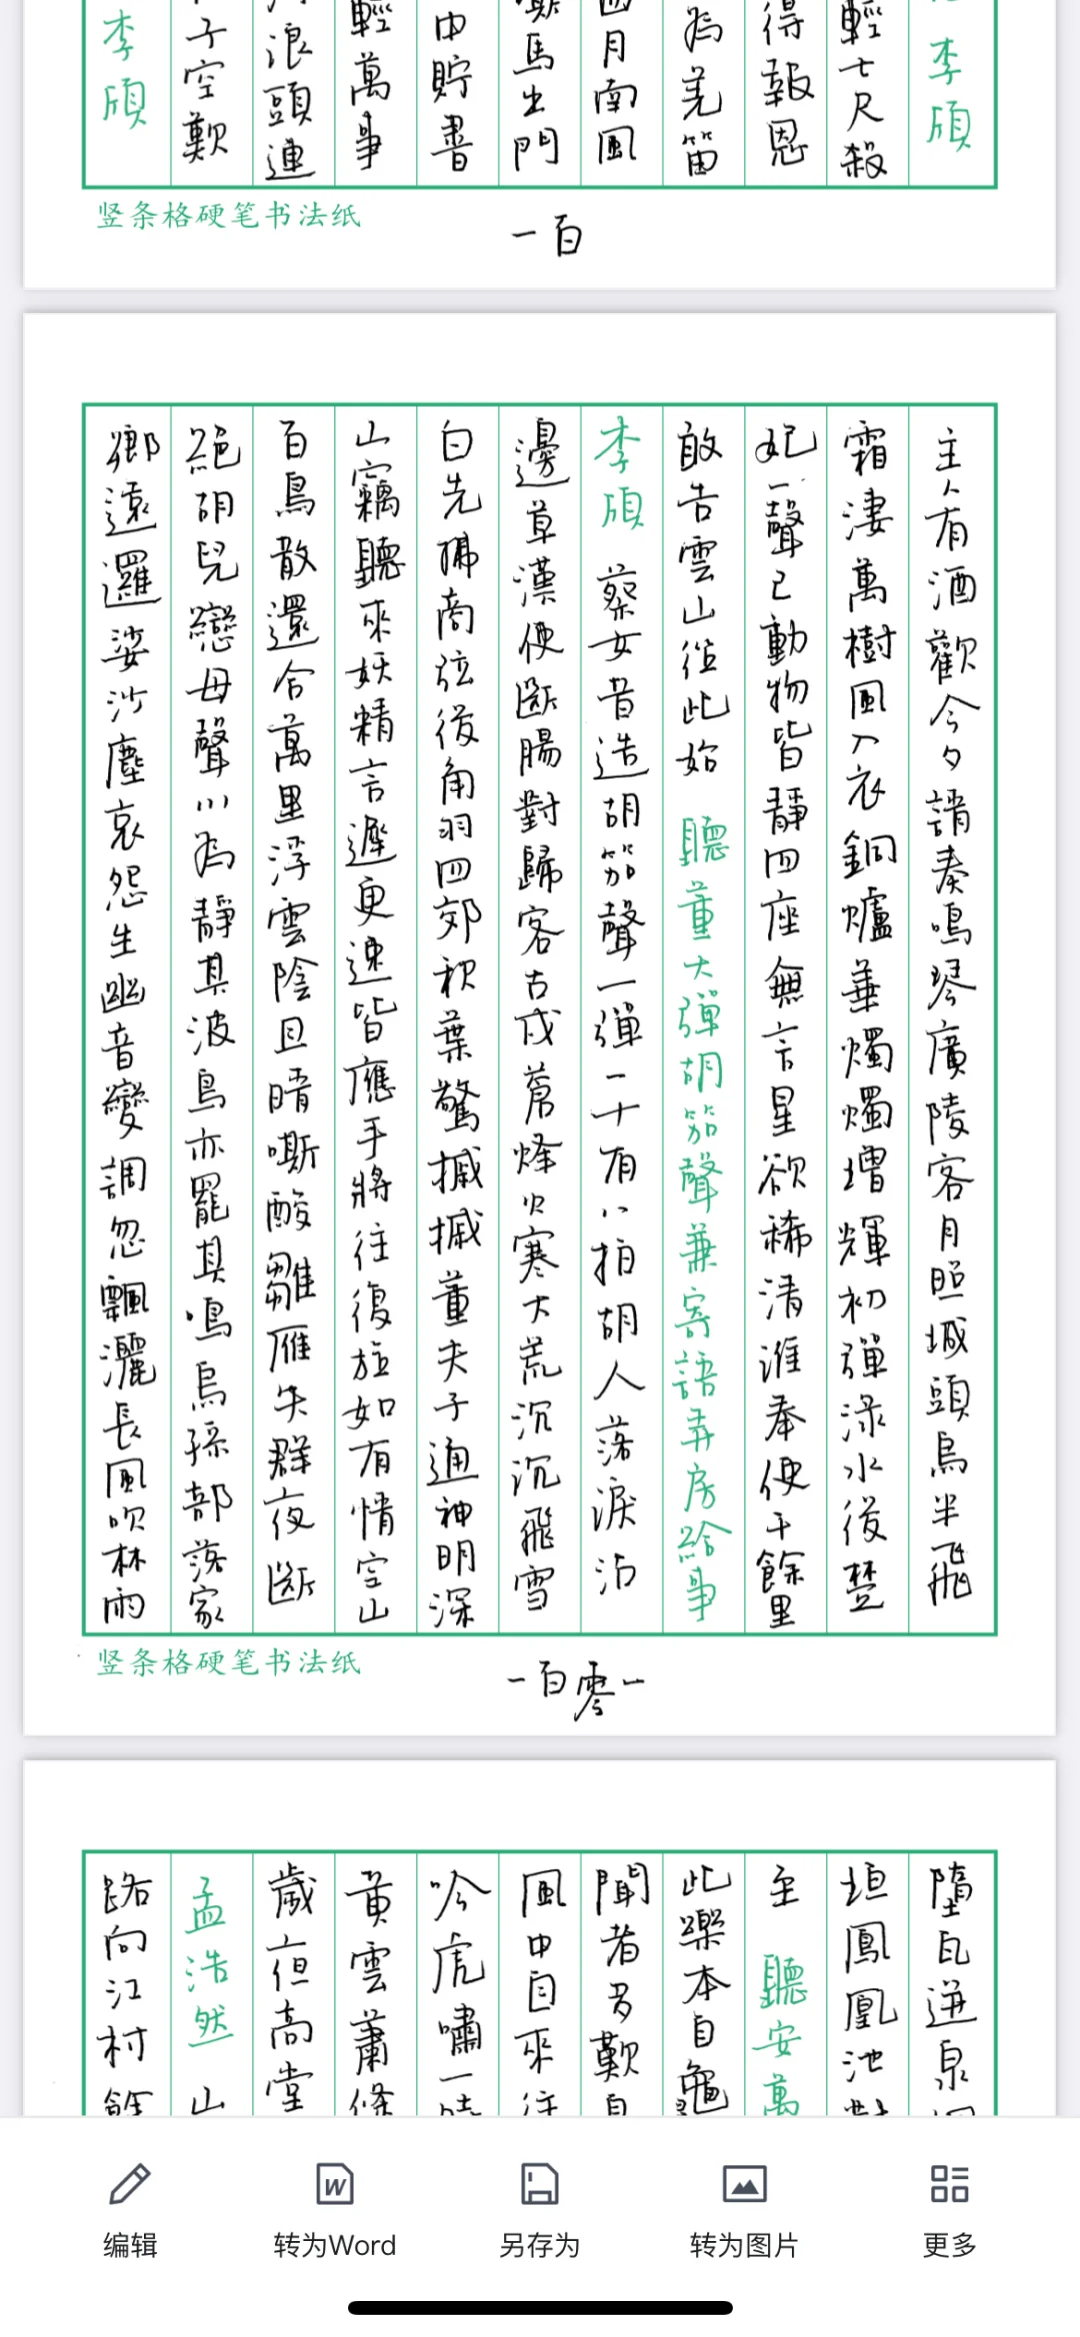 李頎
輕七尺殺
得報恩
為羌笛
四月南風
嘶馬出門
中貯書
輕萬事
浪頭連
子空歎
李頎
竖条格硬笔书法纸
一百
主人有酒歡今夕請奏鳴琴廣陵客月照城頭烏半飛
霜淒萬樹風入衣銅爐華燭燭增輝初彈淥水後楚
妃一聲已動物皆靜四座無言星欲稀清淮奉使千餘里
敢告雲山從此始 聽董大彈胡笳聲兼寄語弄房給事
李頎 蔡女昔造胡笳聲一彈一十有八拍胡人落淚沾
邊草漢使斷腸對歸客古戍蒼烽火寒大荒沉沉飛雪
白先拂商弦後角羽四郊秋葉驚摵摵董夫子通神明深
山竊聽來妖精言遲更速皆應手將往復旋如有情空山
百鳥散還合萬里浮雲陰且晴嘶酸雛雁失群夜斷
絕胡兒戀母聲川為靜其波鳥亦罷其鳴烏孫部落家
鄉遠邏娑沙塵哀怨生幽音變調忽飄灑長風吹林雨
竖条格硬笔书法纸
一百零一
墮瓦迸泉
垣鳳凰池對
至 聽安萬
此樂本自龜
聞者多歎自
風中自來往
吟虎嘯一時
黃雲蕭條
歲夜高堂
孟浩然 山
路向江村餘
编辑
转为Word
另存为
转为图片
更多